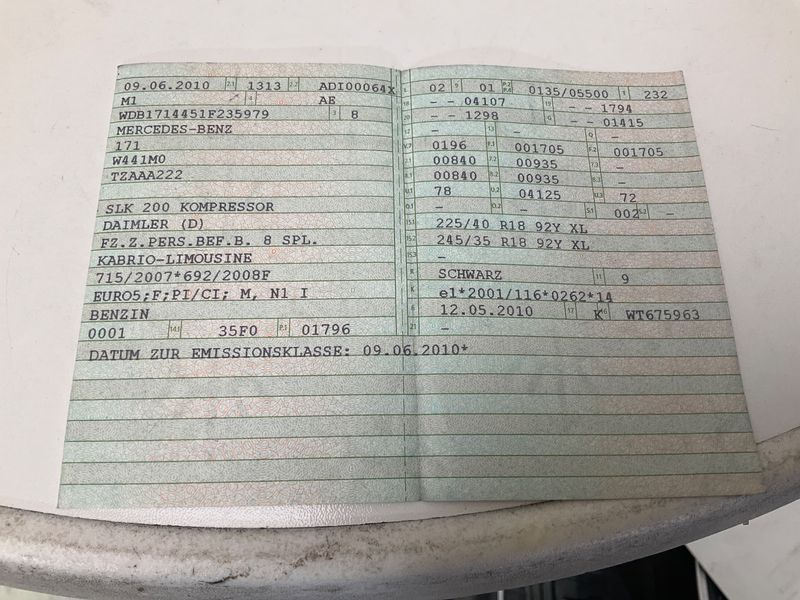 09.06.2010 2.1 1313 2.2 ADI00064X
M1 AE
WDB1714451F235979 3 8
MERCEDES-BENZ
171
W441M0
TZAAA222
SLK 200 KOMPRESSOR
DAIMLER (D)
FZ.Z.PERS.BEF.B. 8 SPL.
KABRIO-LIMOUSINE
715/2007*692/2008F
EURO5;F;PI/CI; M, N1 I
BENZIN
0001 14.1 35F0 P.1 01796
DATUM ZUR EMISSIONSKLASSE: 09.06.2010*
02 9 01 P.2 P.4 0135/05500 T 232
18 - - 04107 19 - - 1794
20 - - 1298 G - - 01415
12 - 13 - Q -
V.7 0196 F.1 001705 F.2 001705
7.1 00840 7.2 00935 7.3 -
8.1 00840 8.2 00935 8.3 -
U.1 78 U.2 04125 U.3 72
O.1 - O.2 - S.1 002 S.2 -
15.1 225/40 R18 92Y XL
15.2 245/35 R18 92Y XL
15.3 -
R SCHWARZ 11 9
K e1*2001/116*0262*14
6 12.05.2010 17 K 16 WT675963
21 -